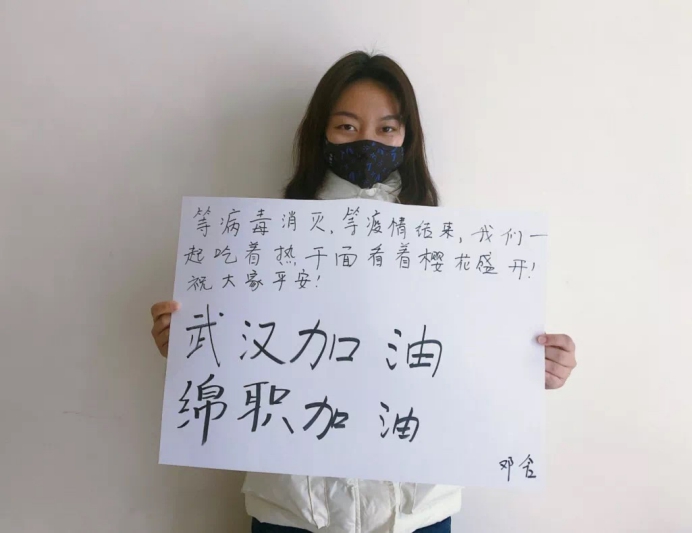 等病毒消灭，等疫情结束，我们一
起吃着热干面看着樱花盛开！
祝大家平安！
武汉加油
绵职加油
邓